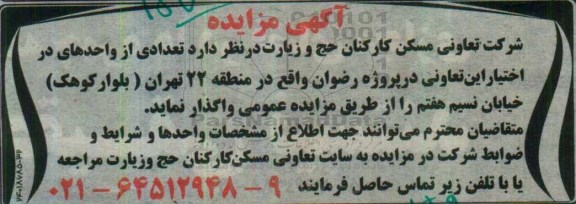 آگهی مزایده
شرکت تعاونی مسکن کارکنان حج و زیارت درنظر دارد تعدادی از واحدهای در
اختیاراین‌تعاونی درپروژه رضوان واقع در منطقه ۲۲ تهران (بلوارکوهک)
خیابان نسیم هفتم را از طریق مزایده عمومی واگذار نماید.
متقاضیان محترم می‌توانند جهت اطلاع از مشخصات واحدها و شرایط و
ضوابط شرکت در مزایده به سایت تعاونی مسکن‌کارکنان حج وزیارت مراجعه
یا با تلفن زیر تماس حاصل فرمایند ۹ - ۶۴۵۱۲۹۴۸ - ۰۲۱
ParsNamadData